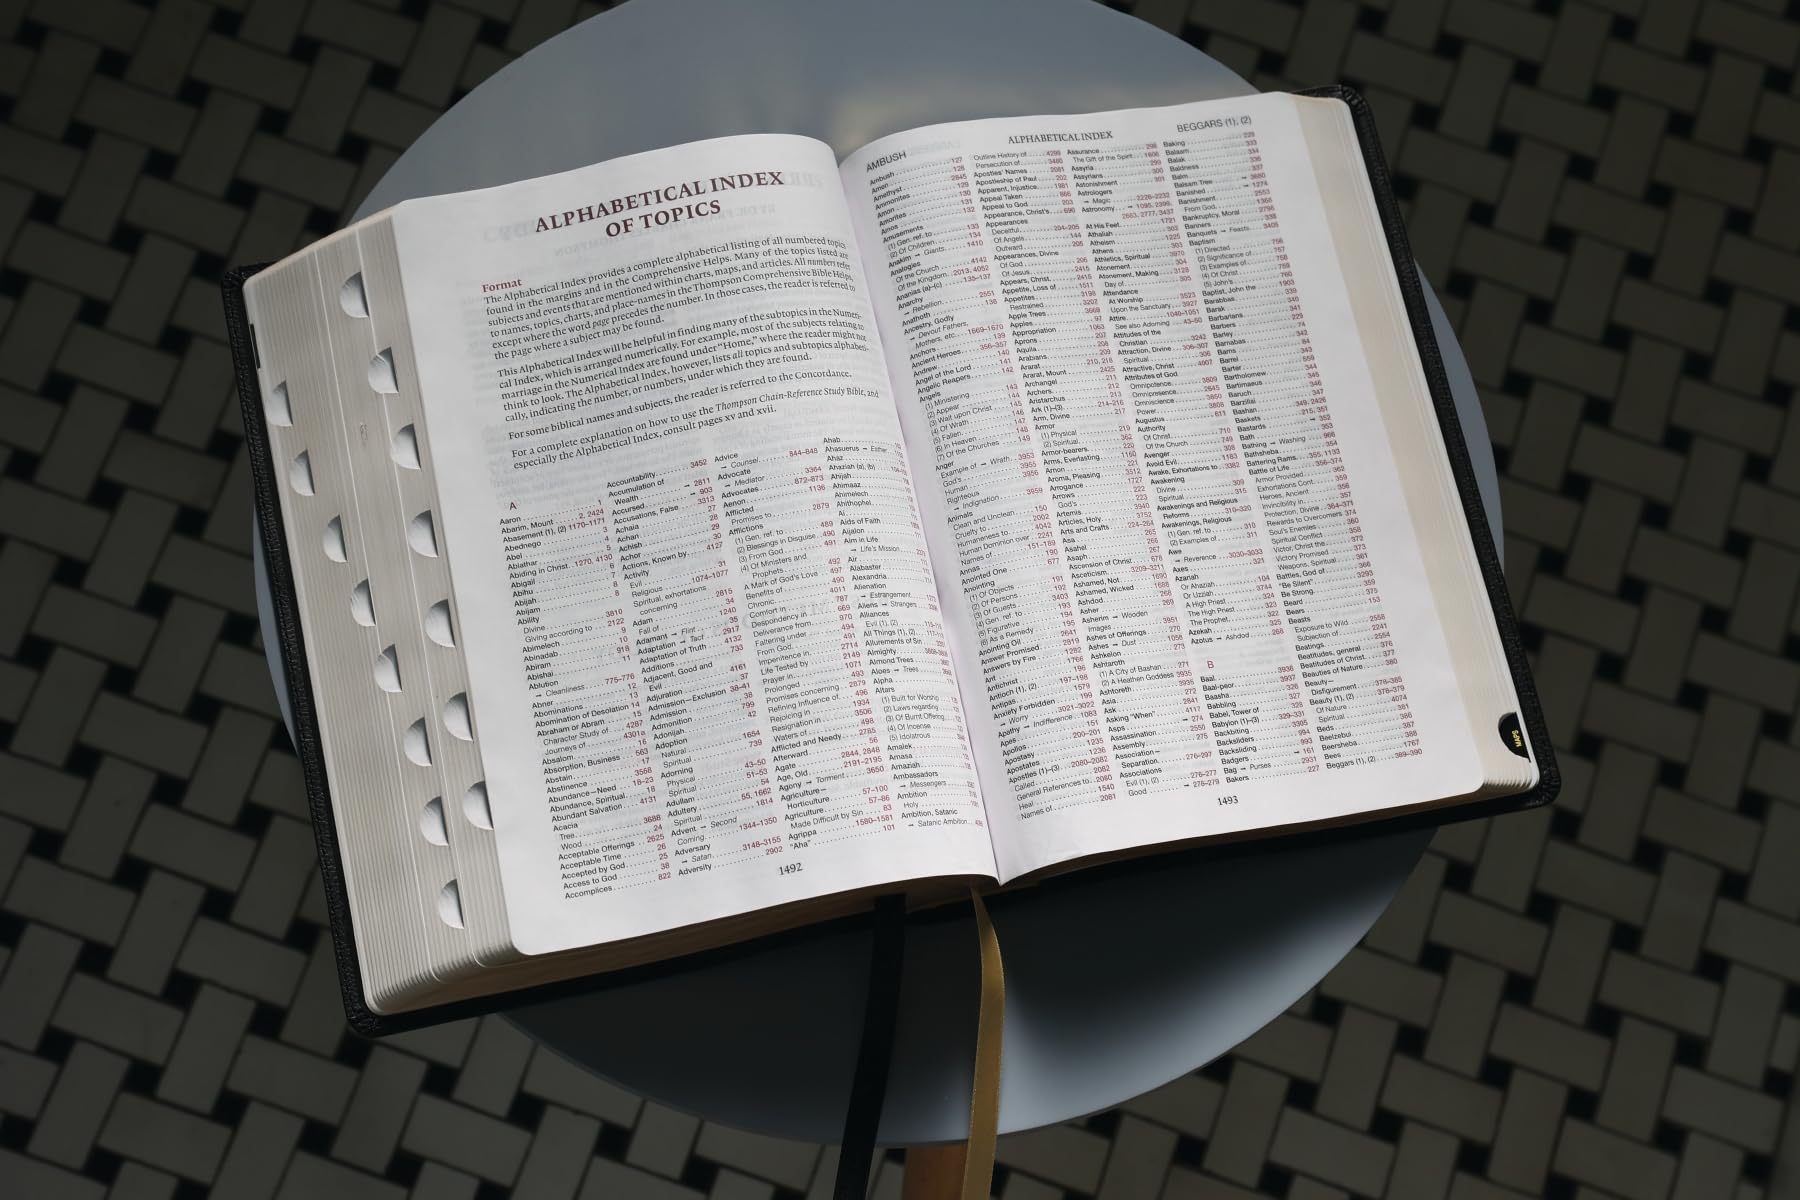 ALPHABETICAL INDEX
OF TOPICS
Format
The Alphabetical Index provides a complete alphabetical listing of all numbered topics
found in the margins and in the Comprehensive Helps. Many of the topics listed are
subjects and events that are mentioned within charts, maps, and articles. All numbers refer
to names, topics, charts, and place-names in the Thompson Comprehensive Bible Helps,
except where the word page precedes the number. In those cases, the reader is referred to
the page where a subject may be found.
This Alphabetical Index will be helpful in finding many of the subtopics in the Numeri-
cal Index, which is arranged numerically. For example, most of the subjects relating to
marriage in the Numerical Index are found under "Home," where the reader might not
think to look. The Alphabetical Index, however, lists all topics and subtopics alphabeti-
cally, indicating the number, or numbers, under which they are found.
For some biblical names and subjects, the reader is referred to the Concordance.
For a complete explanation on how to use the Thompson Chain-Reference Study Bible, and
especially the Alphabetical Index, consult pages xv and xvii.
A
Aaron 1
Abarim, Mount 2, 2424
Abasement (1), (2) 1170-1171
Abednego 3
Abel 4
Abiathar 5
Abiding in Christ 1270, 4130
Abigail 6
Abihu 7
Abijah 8
Abijam
Ability
Divine 3810
Giving according to 2122
Abimelech 9
Abinadab 10
Abiram 918
Abishai 11
Ablution
→ Cleanliness 775-776
Abner 12
Abominations 13
Abomination of Desolation 14
Abraham or Abram 15
Character Study of 4287
Journeys of 4301a
Absalom 16
Absorption, Business 563
Abstain 17
Abstinence 3568
Abundance—Need 18-23
Abundance, Spiritual 18
Abundant Salvation 4131
Acacia
Tree 3688
Wood 24
Acceptable Offerings 2625
Acceptable Time 26
Accepted by God 25
Access to God 38
Accomplices 822
Accountability 3452
Accumulation of
Wealth → 2811
Accursed → 903
Accusations, False 3313
Achaia 27
Achan 28
Achish 29
Achor 30
Actions, Known by 4127
Activity
Evil 31
Religious 1074-1077
Spiritual, exhortations
concerning 2815
Adam 34
Fall of 1240
Adamant → Flint 35
Adaptation → Tact 2917
Adaptation of Truth 4132
Additions 733
Adjacent, Good and
Evil 4161
Adjuration 37
Admission—Exclusion 38-41
Admission 38
Admonition 799
Adonijah 42
Adoption
Natural 1654
Spiritual 739
Adorning
Physical 43-50
Spiritual 51-53
Adullam 54
Adultery 55, 1662
Spiritual 1814
Advent → Second
Coming 1344-1350
Adversary
→ Satan 3148-3155
Adversity 2902
Advice
→ Counsel 844-848
Advocate
→ Mediator 3364
Advocates 872-873
Aenon 1136
Afflicted
Promises to 2879
Afflictions
(1) Gen. ref. to 489
(2) Blessings in Disguise 490
(3) From God 491
(4) Of Ministers and
Prophets 492
A Mark of God's Love 497
Benefits of 490
Chronic 4011
Comfort in 787
Despondency in 669
Deliverance from 970
Faltering under 494
From God 491
Impenitence in 2714
Life Tested by 2149
Prayer in 1071
Prolonged 493
Promises concerning 2879
Refining Influence of 496
Rejoicing in 1934
Resignation in 3506
Waters of 498
Afflicted and Needy 2785
Afterward 56
Agate 2844, 2848
Age, Old 2191-2195
Agony → Torment 3650
Agriculture—
Horticulture 57-100
Agriculture 57-86
Made Difficult by Sin 83
Agrippa 1580-1581
"Aha" 101
Ahab
Ahasuerus → Esther
Ahaz
Ahaziah (a), (b)
Ahijah
Ahimaaz
Ahimelech
Ahithophel
Ai
Aids of Faith
Aijalon
Aim in Life
→ Life's Mission
Air
Alabaster
Alexandria
Alienation
→ Estrangement
Aliens → Strangers
Alliances
Evil (1), (2)
All Things (1), (2)
Allurements of Sin
Almighty
Almond Trees
Aloes → Trees
Alpha
Altars
(1) Built for Worship
(2) Laws regarding
(3) Of Burnt Offering
(4) Of Incense
(5) Idolatrous
Amalek
Amasa
Amaziah
Ambassadors
→ Messengers
Ambition
Holy
Ambition, Satanic
→ Satanic Ambition
1492
AMBUSH
ALPHABETICAL INDEX
BEGGARS (1), (2)
Ambush 127
Amen 128
Amethyst 2845
Ammonites 129
Amon 130
Amorites 131
Amos 132
Amusements
(1) Gen. ref. to 133
(2) Of Children 134
Anakim → Giants 1410
Analogies
Of the Church 4142
Of the Kingdom 2013, 4052
Ananias (a)-(c) 135-137
Anarchy
→ Rebellion 2551
Anathoth 138
Ancestry, Godly
→ Devout Fathers,
Mothers, etc. 1669-1670
Anchors 139
Ancient Heroes 356-357
Andrew 140
Angel of the Lord 141
Angelic Reapers 142
Angels
(1) Ministering 143
(2) Appear 144
(3) Wait upon Christ 145
(4) Of Wrath 146
(5) Fallen 147
(6) In Heaven 148
(7) Of the Churches 149
Anger
Example of → Wrath 3953
God's 3955
Human 3956
Righteous
→ Indignation 3959
Animals
Clean and Unclean 150
Cruelty to 2002
Humaneness to 4042
Human Dominion over 2241
Names of 151-189
Annas 190
Anointed One 677
Anointing
(1) Of Objects 191
(2) Of Persons 192
(3) Of Guests 3403
(4) Gen. ref. to 193
(5) Figurative 194
(6) As a Remedy 195
Anointing Oil 2641
Answer Promised 2819
Answers by Fire 1282
Ant 1766
Antichrist 196
Antioch (1), (2) 197-198
Antipas 1579
Anxiety Forbidden 199
→ Worry 3021-3022
Apathy → Indifference 1083
Apes 151
Apollos 200-201
Apostasy 1235
Apostates 1236
Apostles (1)-(3) 2080-2082
Called 2082
General References to 2080
Heal 1540
Names of 2081
Outline History of 4299
Persecution of 3480
Apostles' Names 2081
Apostleship of Paul 202
Apparent, Injustice 1981
Appeal Taken 866
Appeal to God 203
Appearance, Christ's 690
Appearances
Deceitful 204-205
Of Angels 144
Outward 205
Appearances, Divine
Of God 206
Of Jesus 2415
Appears, Christ 2415
Appetite, Loss of 1511
Appetites 3198
Restrained 3207
Apple Trees 3668
Apples 97
Appropriation 1063
Aprons 207
Aquila 208
Arabians 209
Ararat 210, 218
Ararat, Mount 2425
Archangel 211
Archers 212
Aristarchus 213
Ark (1)-(3) 214-216
Arm, Divine 217
Armor
(1) Physical 219
(2) Spiritual 362
Armor-bearers 220
Arms, Everlasting 1160
Arnon 221
Aroma, Pleasing 3512
Arrogance 1727
Arrows 222
God's 223
Artemis 3940
Articles, Holy 3752
Arts and Crafts 224-264
Asa 265
Asahel 266
Asaph 267
Ascension of Christ 678
Asceticism 3209-3211
Ashamed, Not 1690
Ashamed, Wicked 1688
Ashdod 268
Asher 269
Asherah → Wooden
Images 3951
Ashes of Offerings 270
Ashes → Dust 1058
Ashkelon 273
Ashtaroth
(1) A City of Bashan 271
(2) A Heathen Goddess 3935
Ashtoreth 3935
Asia 272
Ask 2841
Asking "When" 4117
Asps → 274
Assassination 2550
Assembly 275
Association—
Separation 276-297
Associations
Evil (1), (2) 276-277
Good → 278-279
Assurance 298
The Gift of the Spirit 1606
Assyria 299
Assyrians 300
Astonishment 301
Astrologers
→ Magic 2226-2232
Astronomy → 1095, 2398,
2663, 2777, 3437
At His Feet 1721
Athaliah 302
Atheism 1225
Athens 303
Athletics, Spiritual 3970
Atonement 304
Atonement, Making 3128
Day of 305
Attendance
At Worship 3523
Upon the Sanctuary 3927
Attire 1040-1051
See also Adorning 43-50
Attitudes of the
Christian 3242
Attraction, Divine 306-307
Spiritual 306
Attractive, Christ 4007
Attributes of God
Omnipotence 3809
Omnipresence 2645
Omniscience 3850
Power 3808
Augustus 611
Authority
Of Christ 710
Of the Church 749
Avenger 308
Avoid Evil 1183
Awake, Exhortations to 3382
Awakening
Divine 309
Spiritual 315
Awakenings and Religious
Reforms 310-320
Awakenings, Religious
(1) Gen. ref. to 310
(2) Examples of 311
Awe
→ Reverence 3030-3033
Axes 321
Azariah
Or Ahaziah 104
Or Uzziah 3744
A High Priest 324
The High Priest 323
The Prophet 322
Azekah 325
Azotus → Ashdod 268
B
Baal 3936
Baal-peor 3937
Baasha 326
Babbling 327
Babel, Tower of 328
Babylon (1)-(3) 329-331
Backbiting 3305
Backsliders 994
Backsliding 993
Badgers → 161
Bag → Purses 2931
Bakers 227
Baking 229
Balaam 333
Balak 334
Baldness 336
Balm 337
Balsam Tree → 3680
Banished → 1274
Banishment 2553
From God 1366
Bankruptcy, Moral 2798
Banners 338
Banquets → Feasts 3405
Baptism
(1) Directed 756
(2) Significance of 757
(3) Examples of 758
(4) Of Christ 759
(5) John's 760
Baptist, John the 1903
Barabbas 339
Barak 340
Barbarians 341
Barbers 229
Barley 74
Barnabas 342
Barns 84
Barrel 343
Barter 559
Bartholomew 344
Bartimaeus 345
Baruch 346
Barzillai 347
Bashan 349, 2426
Baskets 215, 351
Bastards → 352
Bath 353
Bathing → Washing 966
Bathsheba 354
Battering Rams 355, 1133
Battle of Life 356-374
Armor Provided 362
Exhortations Cont. 359
Heroes, Ancient 356
Invincibility in 357
Protection, Divine 364-371
Rewards to Overcomers 374
Soul's Enemies 360
Spiritual Conflict 358
Victor, Christ the 372
Victory Promised 373
Weapons, Spiritual 361
Battles, God of 366
"Be Silent" 3293
Be Strong 359
Beard 315
Bears 153
Beasts
Exposure to Wild 2558
Subjection of 2241
Beatings 2554
Beatitudes, general 376
Beatitudes of Christ 377
Beauties of Nature 380
Beauty—
Disfigurement 378-385
Beauty (1), (2) 378-379
Of Nature 4074
Spiritual 381
Bed 385
Beelzebul 386
Beersheba 387
Bees 1767
Beggars (1), (2) 389-390
1493
MAPS